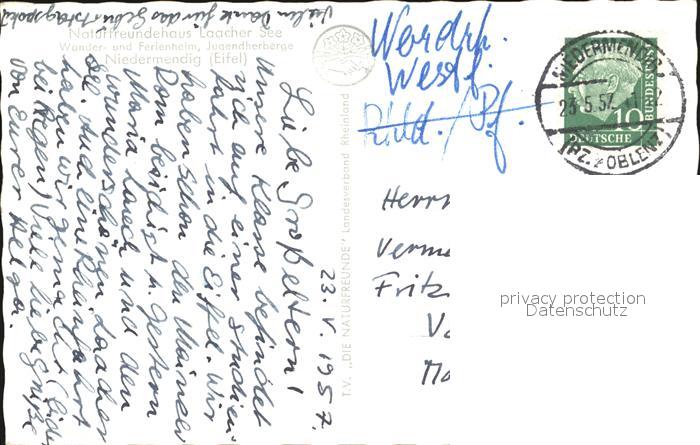 Vielen Dank für das Geburtstagspaket
Naturfreundehaus Laacher See
Wander- und Ferienheim, Jugendherberge
Niedermendig (Eifel)
23. V. 1957.
Liebe Großeltern!
Unsere Klasse befindet
sich auf einer Studien-
fahrt in die Eifel. Wir
haben schon den Mainzer
Dom besichtigt u. gestern
Maria Laach und den
wunderschönen Laacher
See. Auch eine Rheinfahrt
haben wir gemacht (leider
bei Regen). Viele liebe Grüße
von Eurer Helga.
T.V. „DIE NATURFREUNDE" Landesverband Rheinland
Westf.
Pf.
NIEDERMENDIG
23.5.57
(BZ. KOBLENZ)
10
DEUTSCHE
BUNDESPOST
Herrn
Verm
Fritz
privacy protection
Datenschutz